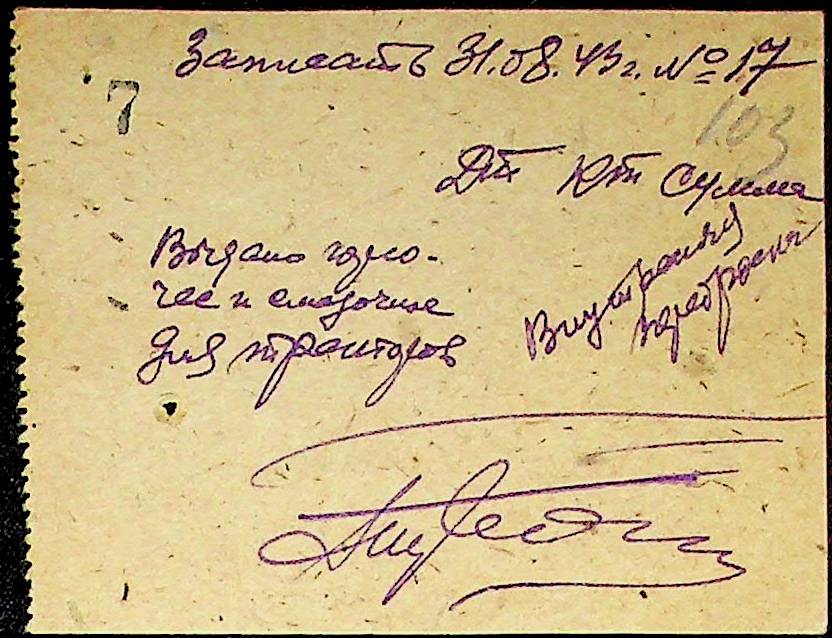 Записать 31.08.43 г. № 17
7
103
Дт Кт Сумма
Выдано горю-
чее и смазочные
для тракторов
Внутренняя
переброска